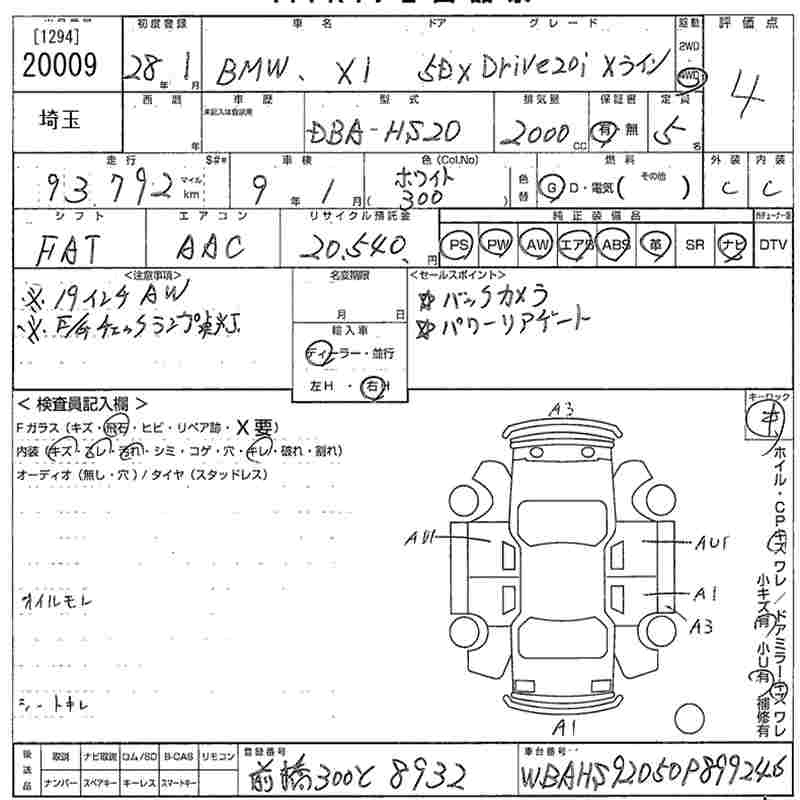 [1294]
20009
初度登録 車名 ドア グレード 駆動 評価点
28年 1月 BMW. X1 5D X Drive20i Xライン 2WD 4WD 4
埼玉
西暦 車歴 型式 排気量 保証書 定員
年 未記入は自家用 DBA-HS20 2000 CC 有・無 5名
走行 S#* 車検 色(Col.No) 燃料 外装 内装
93,792 マイル km 9年 1月 ホワイト (300) 色替 G・D・電気( その他 ) C C
シフト エアコン リサイクル預託金 純正装備品
FAT AAC 20,540円 PS PW AW エアB ABS 革 SR ナビ DTV
<注意事項> 名変期限 <セールスポイント>
※ 19インチAW
※ E/Gチェックランプ点灯
月 日
輸入車
ディーラー・並行
左H・右H
☆ バックカメラ
☆ パワーリアゲート
< 検査員記入欄 >
Fガラス (キズ・飛石・ヒビ・リペア跡・X要)
内装 (キズ・スレ・汚れ・シミ・コゲ・穴・キレ・破れ・割れ)
オーディオ (無し・穴) / タイヤ (スタッドレス)
オイルモレ
シートキレ
A3
AU1
AU1
A1
A3
A1
キーロック
キ
ホイル・CPキズ ワレ/ドアミラーキズ ワレ
小キズ有 小U有 補修有
後送品 取説 ナビ取説 ロム/SD B-CAS リモコン
ナンバー スペアキー キーレス スマートキー
登録番号
前橋300と 8932
車台番号
WBAHS92050P899246